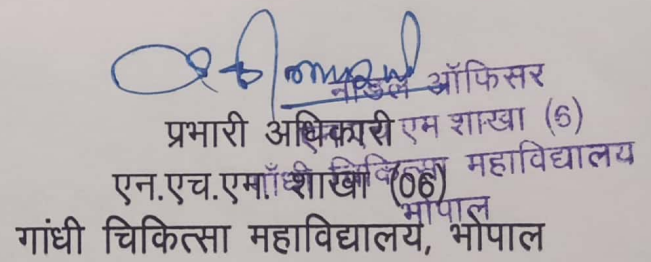 नोडल ऑफिसर
प्रभारी अधिकारी
एम शाखा (6)
एन.एच.एम. शाखा (06)
गाँधी चिकित्सा महाविद्यालय
भोपाल
गांधी चिकित्सा महाविद्यालय, भोपाल